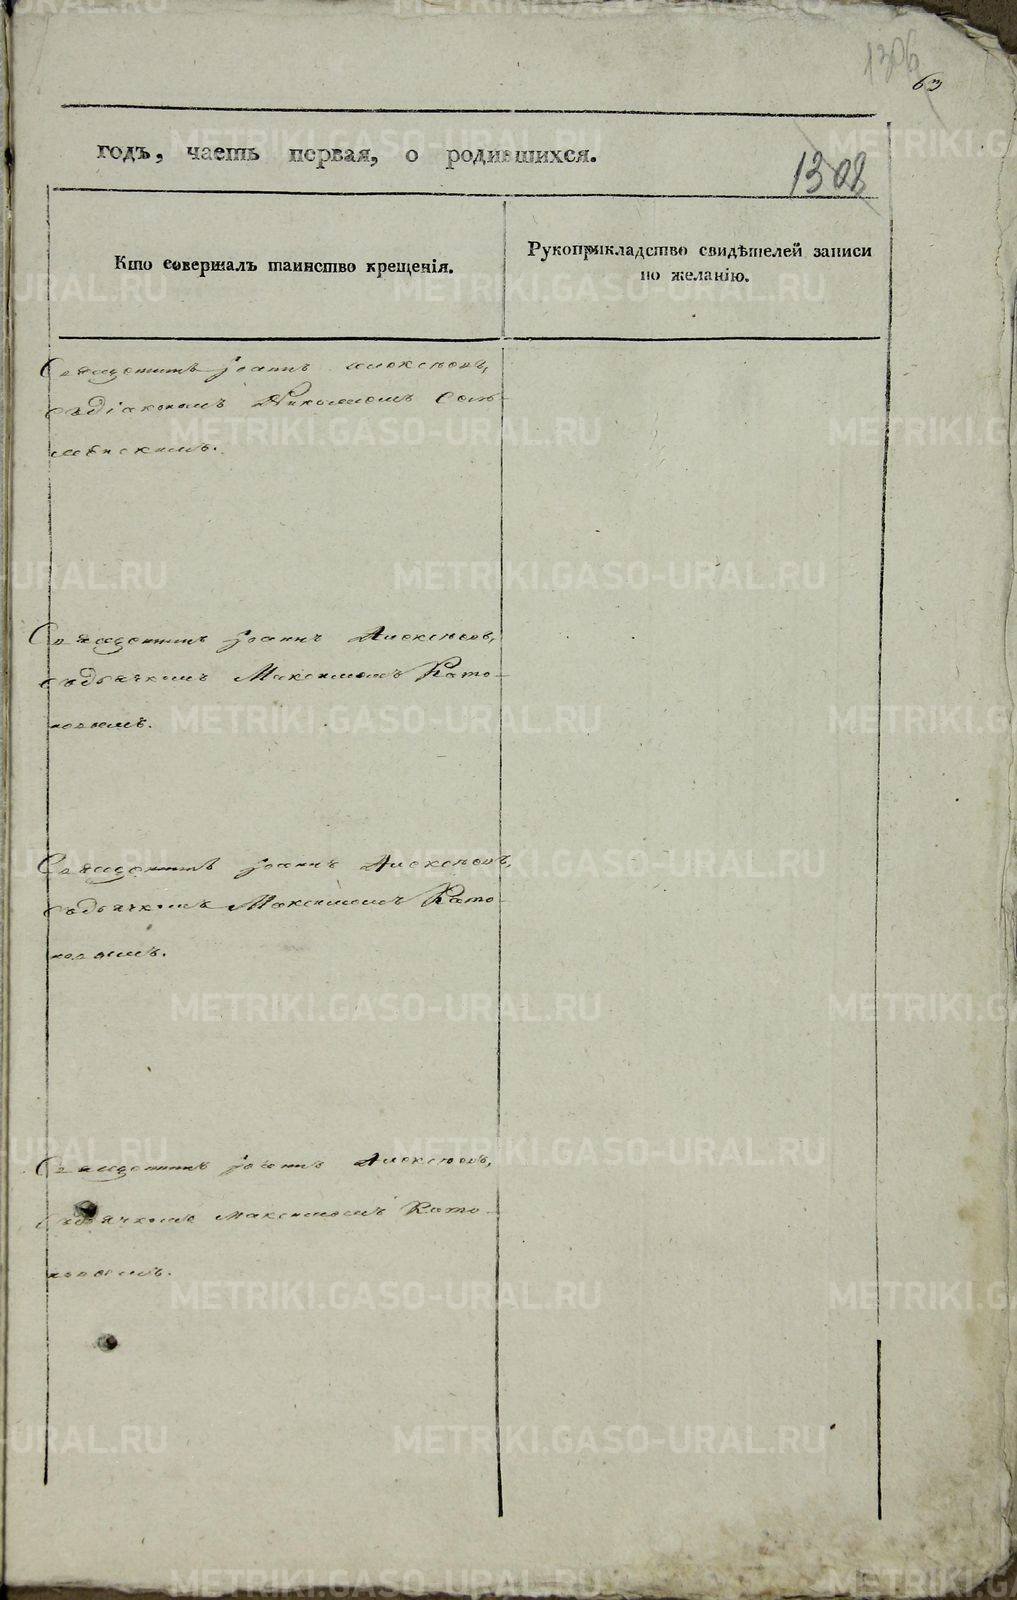 1306
63
годъ, часть первая, о родившихся.
1308
Кто совершалъ таинство крещенія.
Рукоприкладство свидѣтелей записи
по желанію.
Священникъ Іоаннъ Алексѣевъ,
съ діакономъ Николаемъ
Священникъ Іоаннъ Алексѣевъ,
съ дьячкомъ Максимомъ Като-
новымъ.
Священникъ Іоаннъ Алексѣевъ,
съ дьячкомъ Максимомъ Като-
новымъ.
Священникъ Іоаннъ Алексѣевъ,
съ дьячкомъ Максимомъ Като-
новымъ.
METRIKI.GASO-URAL.RU